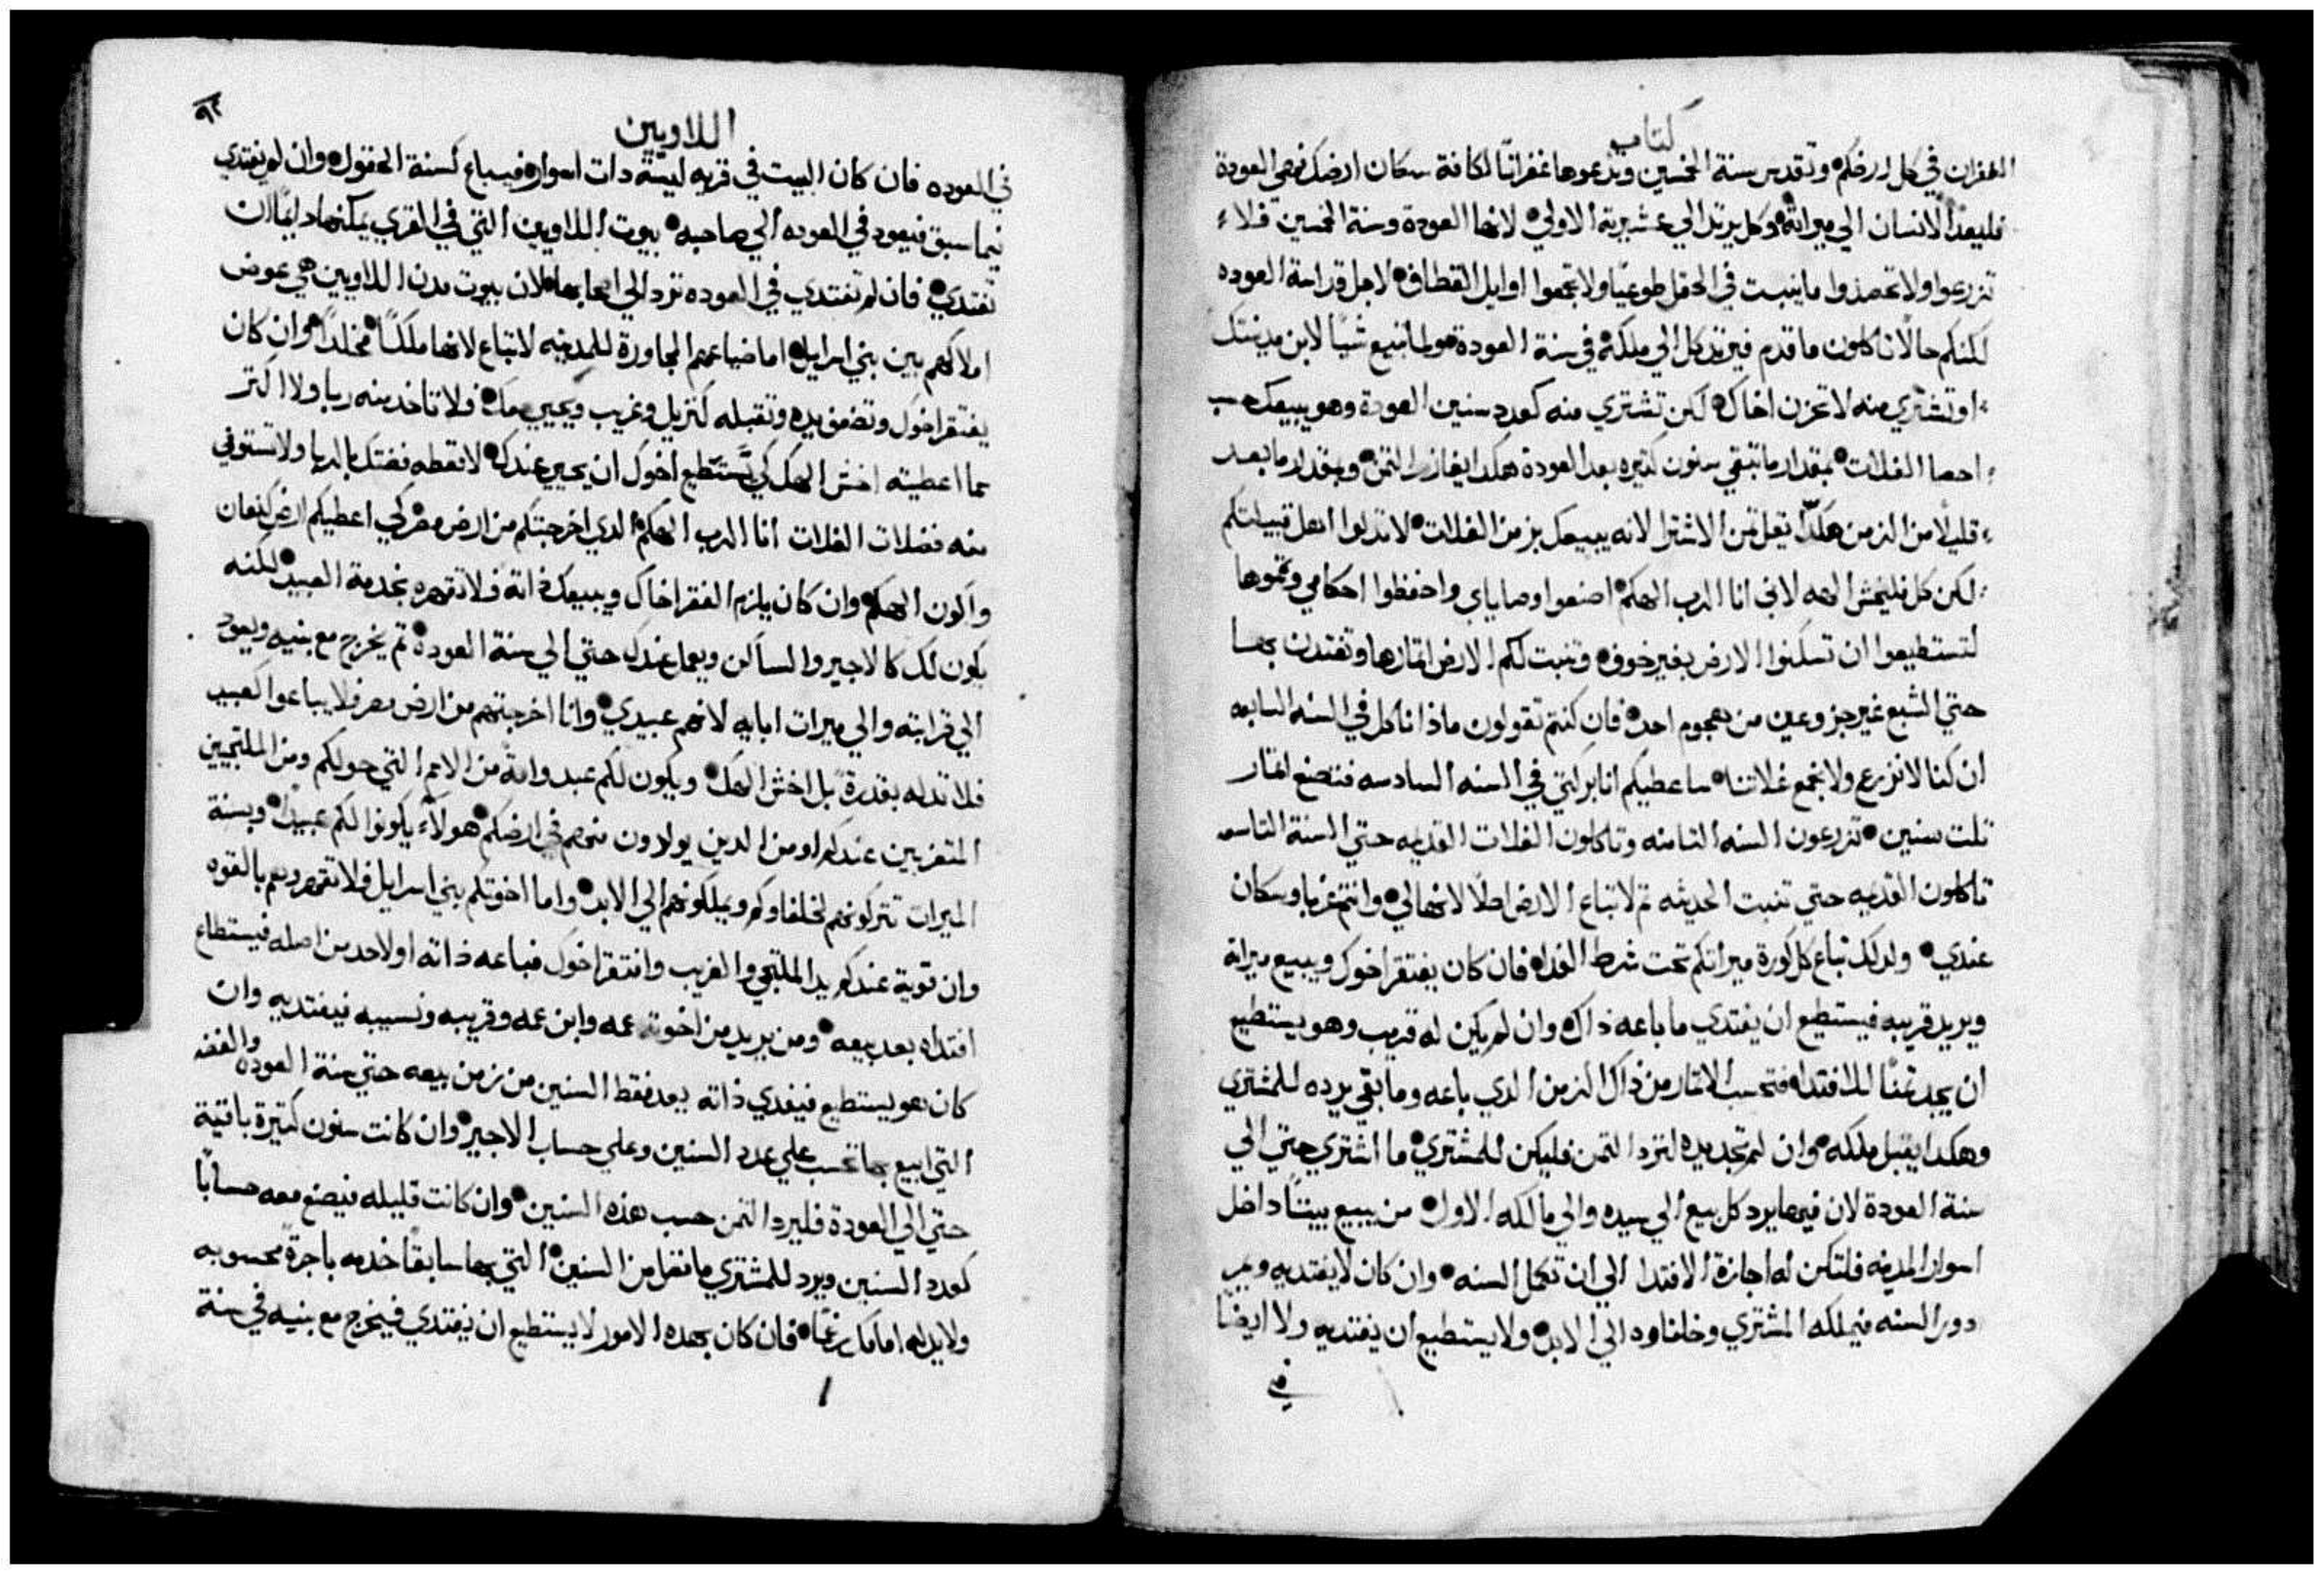 كتاب
الغفران في كل ارضكم وتقدس سنة الخمسين وتدعوها غفرانًا لكافة سكان ارضك فهي العودة
فليعد الانسان الي ميراثه وكل يرتد الي عشيرته الاولي لانها العودة وسنة الخمسين فلا
تزرعوا ولا تحصدوا ما ينبت في الحقل طوعيًا ولا تجمعوا اوايل القطاف لاجل قداسة العوده
لكنكم حالًا تاكلون ما قدم فيرتد كل الي ملكه في سنة العودة ولما تبيع شيًا لابن مدينتك
او تشتري منه لا تحزن اخاك لكن تشتري منه كعدد سنين العودة وهو يبيعك حسب
احصا الغلات بمقدار ما تبقي سنون كتيره بعد العودة هكدا يزاد التمن وبقدار ما بعد
قليلًا من الزمن هكدا يقل تمن الاشترا لانه يبيعك بزمن الغلات لا تدلوا اهل قبيلتكم
لكن كل فليخش الهه لاني انا الرب الهكم اصنعوا وصاياي واحفظوا احكامي وتمموها
لتستطيعوا ان تسكنوا الارض بغير خوف وتنبت لكم الارض اتمارها وتغتدن بها
حتي الشبع غير جزوعين من هجوم احد فان كنتم تقولون ماذا ناكل في السنه السابعه
ان كنا لا نزرع ولا نجمع غلاتنا ساعطيكم انا بركتي في السنه السادسه فتصنع اتمار
تلت سنين تزرعون السنه التامنه وتاكلون الغلات القديمه حتي السنة التاسعه
تاكلون القديمه حتي تنبت الحديثه تم لا تباع الارض اصلًا لانها لي وانتم غربا وسكان
عندي ولدلك تباع كل كورة ميراتكم تحت شرط الفداه فان كان يفتقر اخوك ويبيع ميراته
ويريد قريبه فيستطيع ان يفتدي ما باعه ذاك وان لم يكن له قريب وهو يستطيع
ان يجد تمنًا للافتداه فتحسب الاتمار من ذاك الزمن الدي باعه وما بقي يرده للمشتري
وهكدا يقبل ملكه وان لم تجد يده لترد التمن فليكن للمشتري ما اشتري حتي الي
سنة العودة لان فيها يرد كل بيع الي سيده والي مالكه الاول من يبيع بيتًا داخل
اسوار المدينه فلتكن له اجازة الافتدا الي ان تكمل السنه وان كان لا يفتديه ويمر
دور السنه فيملكه المشتري وخلفاوه الي الابد ولا يستطيع ان يفتديه ولا ايضًا
في
اللاويين
٩٢
في العوده فان كان البيت في قريه ليسة دات اسواره فيباع كسنة الحقول وان لم يفتدي
فيما سبق فيعود في العوده الي صاحبه بيوت اللاويين التي في القري يمكنها دايمًا ان
تفتدي فان لم تفتدي في العوده ترد الي اصحابها لان بيوت مدن اللاويين هي عوض
املاكهم بين بني اسرايل اما ضياعهم المجاورة للمدينه لا تباع لانها ملكًا مخلدًا وان كان
يفتقر اخوك وتضعف يده وتقبله كنزيل وغريب ويحيي معك فلا تاخد منه ربا ولا اكتر
مما اعطيته اخش الهك كي يستطيع اخوك ان يحيي عندك لا تعطه فضتك بالربا ولا تستوفي
منه فضلات الغلات انا الرب الهكم الدي اخرجتكم من ارض مصر كي اعطيكم ارض كنعان
واكون الهكم وان كان يلزم الفقر اخاك ويبيعك ذاته فلا تقهره بخدمة العبيد لكنه
يكون لك كالاجير والساكن ويعمل عندك حتي الي سنة العودة تم يخرج مع بنيه ويعود
الي قرابته والي ميرات ابايه لانهم عبيدي وانا اخرجتهم من ارض مصر فلا يباعوا كعبيد
فلا تدله بقدرة بل اخش الهك ويكون لكم عبد وامة من الامم التي حولكم ومن الملتجيين
المتغربين عندكم او من الدين يولدون منهم في ارضكم هولاء يكونوا لكم عبيدًا وبسنة
الميرات تتركونهم لخلفاوكم ويملكونهم الي الابد واما اخوتكم بني اسرايل فلا تقهروهم بالقوه
وان قوية عندكم يد الملتجي والغريب وافتقر اخوك فباعه ذاته او لاحد من اصله فيستطاع
افتداه بعد بيعه ومن يريد من اخوته عمه وابن عمه وقريبه ونسيبه فيفتديه وان
كان هو يستطيع فيفدي ذاته يعد فقط السنين من زمن بيعه حتي سنة العوده والفضه
التي ابيع بها تحسب علي عدد السنين وعلي حساب الاجير وان كانت سنون كتيرة باقية
حتي الي العودة فليرد التمن حسب هذه السنين وان كانت قليله فيصنع معه حسابًا
كعدد السنين ويرد للمشتري ما فضل من السنين التي بها سابقًا خدمه باجرة محسوبه
ولا يدله امامك رغمًا فان كان بهده الامور لا يستطيع ان يفتدي فيخرج مع بنيه في سنة